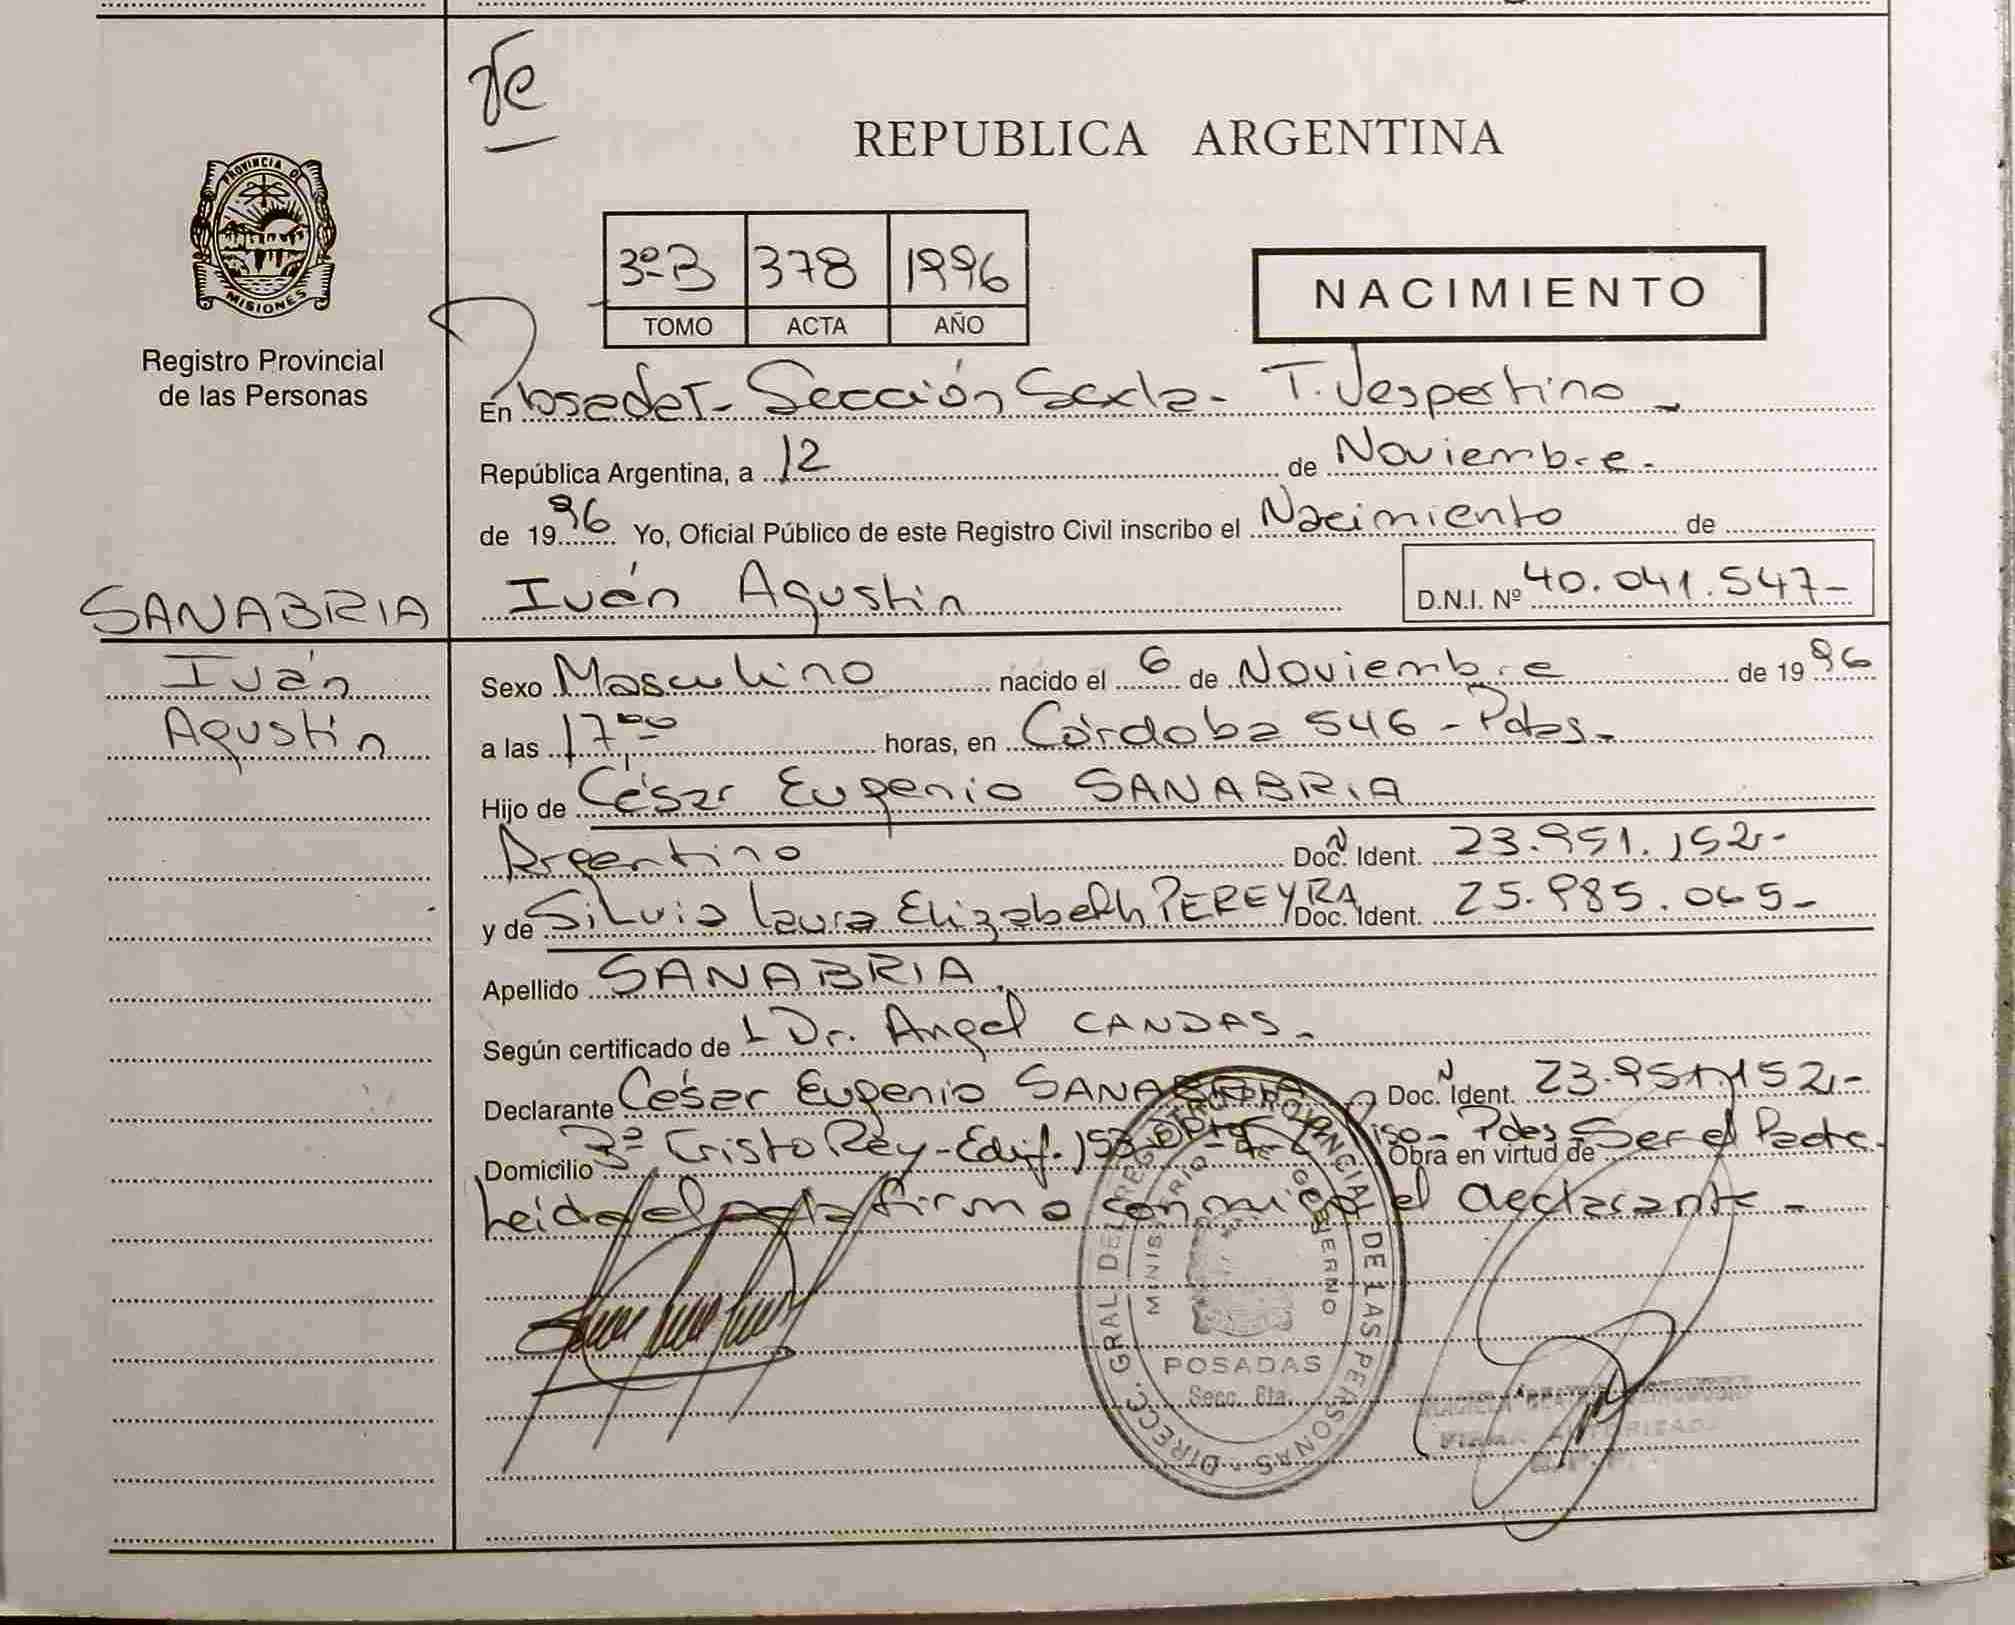 REPUBLICA ARGENTINA
PROVINCIA DE
MISIONES
Registro Provincial
de las Personas
3º-B 378 1996
TOMO ACTA AÑO
NACIMIENTO
En Posadas- Sección Sexta- T. Vespertino -
República Argentina, a 12 de Noviembre.
de 1996 Yo, Oficial Público de este Registro Civil inscribo el Nacimiento de
Iván Agustín D.N.I. Nº 40.041.547-
SANABRIA
Iván
Agustín
Sexo Masculino nacido el 6 de Noviembre de 1996
a las 17⁰⁰ horas, en Córdoba 546 - Pdas.-
Hijo de César Eugenio SANABRIA
Argentino Doc. Ident. 23.951.152.-
y de Silvia Laura Elizabeth PEREYRA Doc. Ident. 25.985.065-
Apellido SANABRIA.
Según certificado de L Dr. Angel CANDAS-
Declarante César Eugenio SANABRIA Doc. Ident. 23.951.152.-
Domicilio Cristo Rey- Edif. 153 Piso- Pdas Obra en virtud de Ser el Padre.
Leída el acta firma conmigo el declarante-
DIRECC. GRAL DEL REGISTRO PROVINCIAL DE LAS PERSONAS -
MINISTERIO DE GOBIERNO
POSADAS
Secc. 6ta.
FIRMA AUTORIZADA